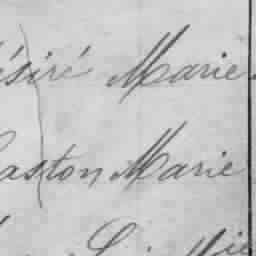 ésiré Marie
aston Marie